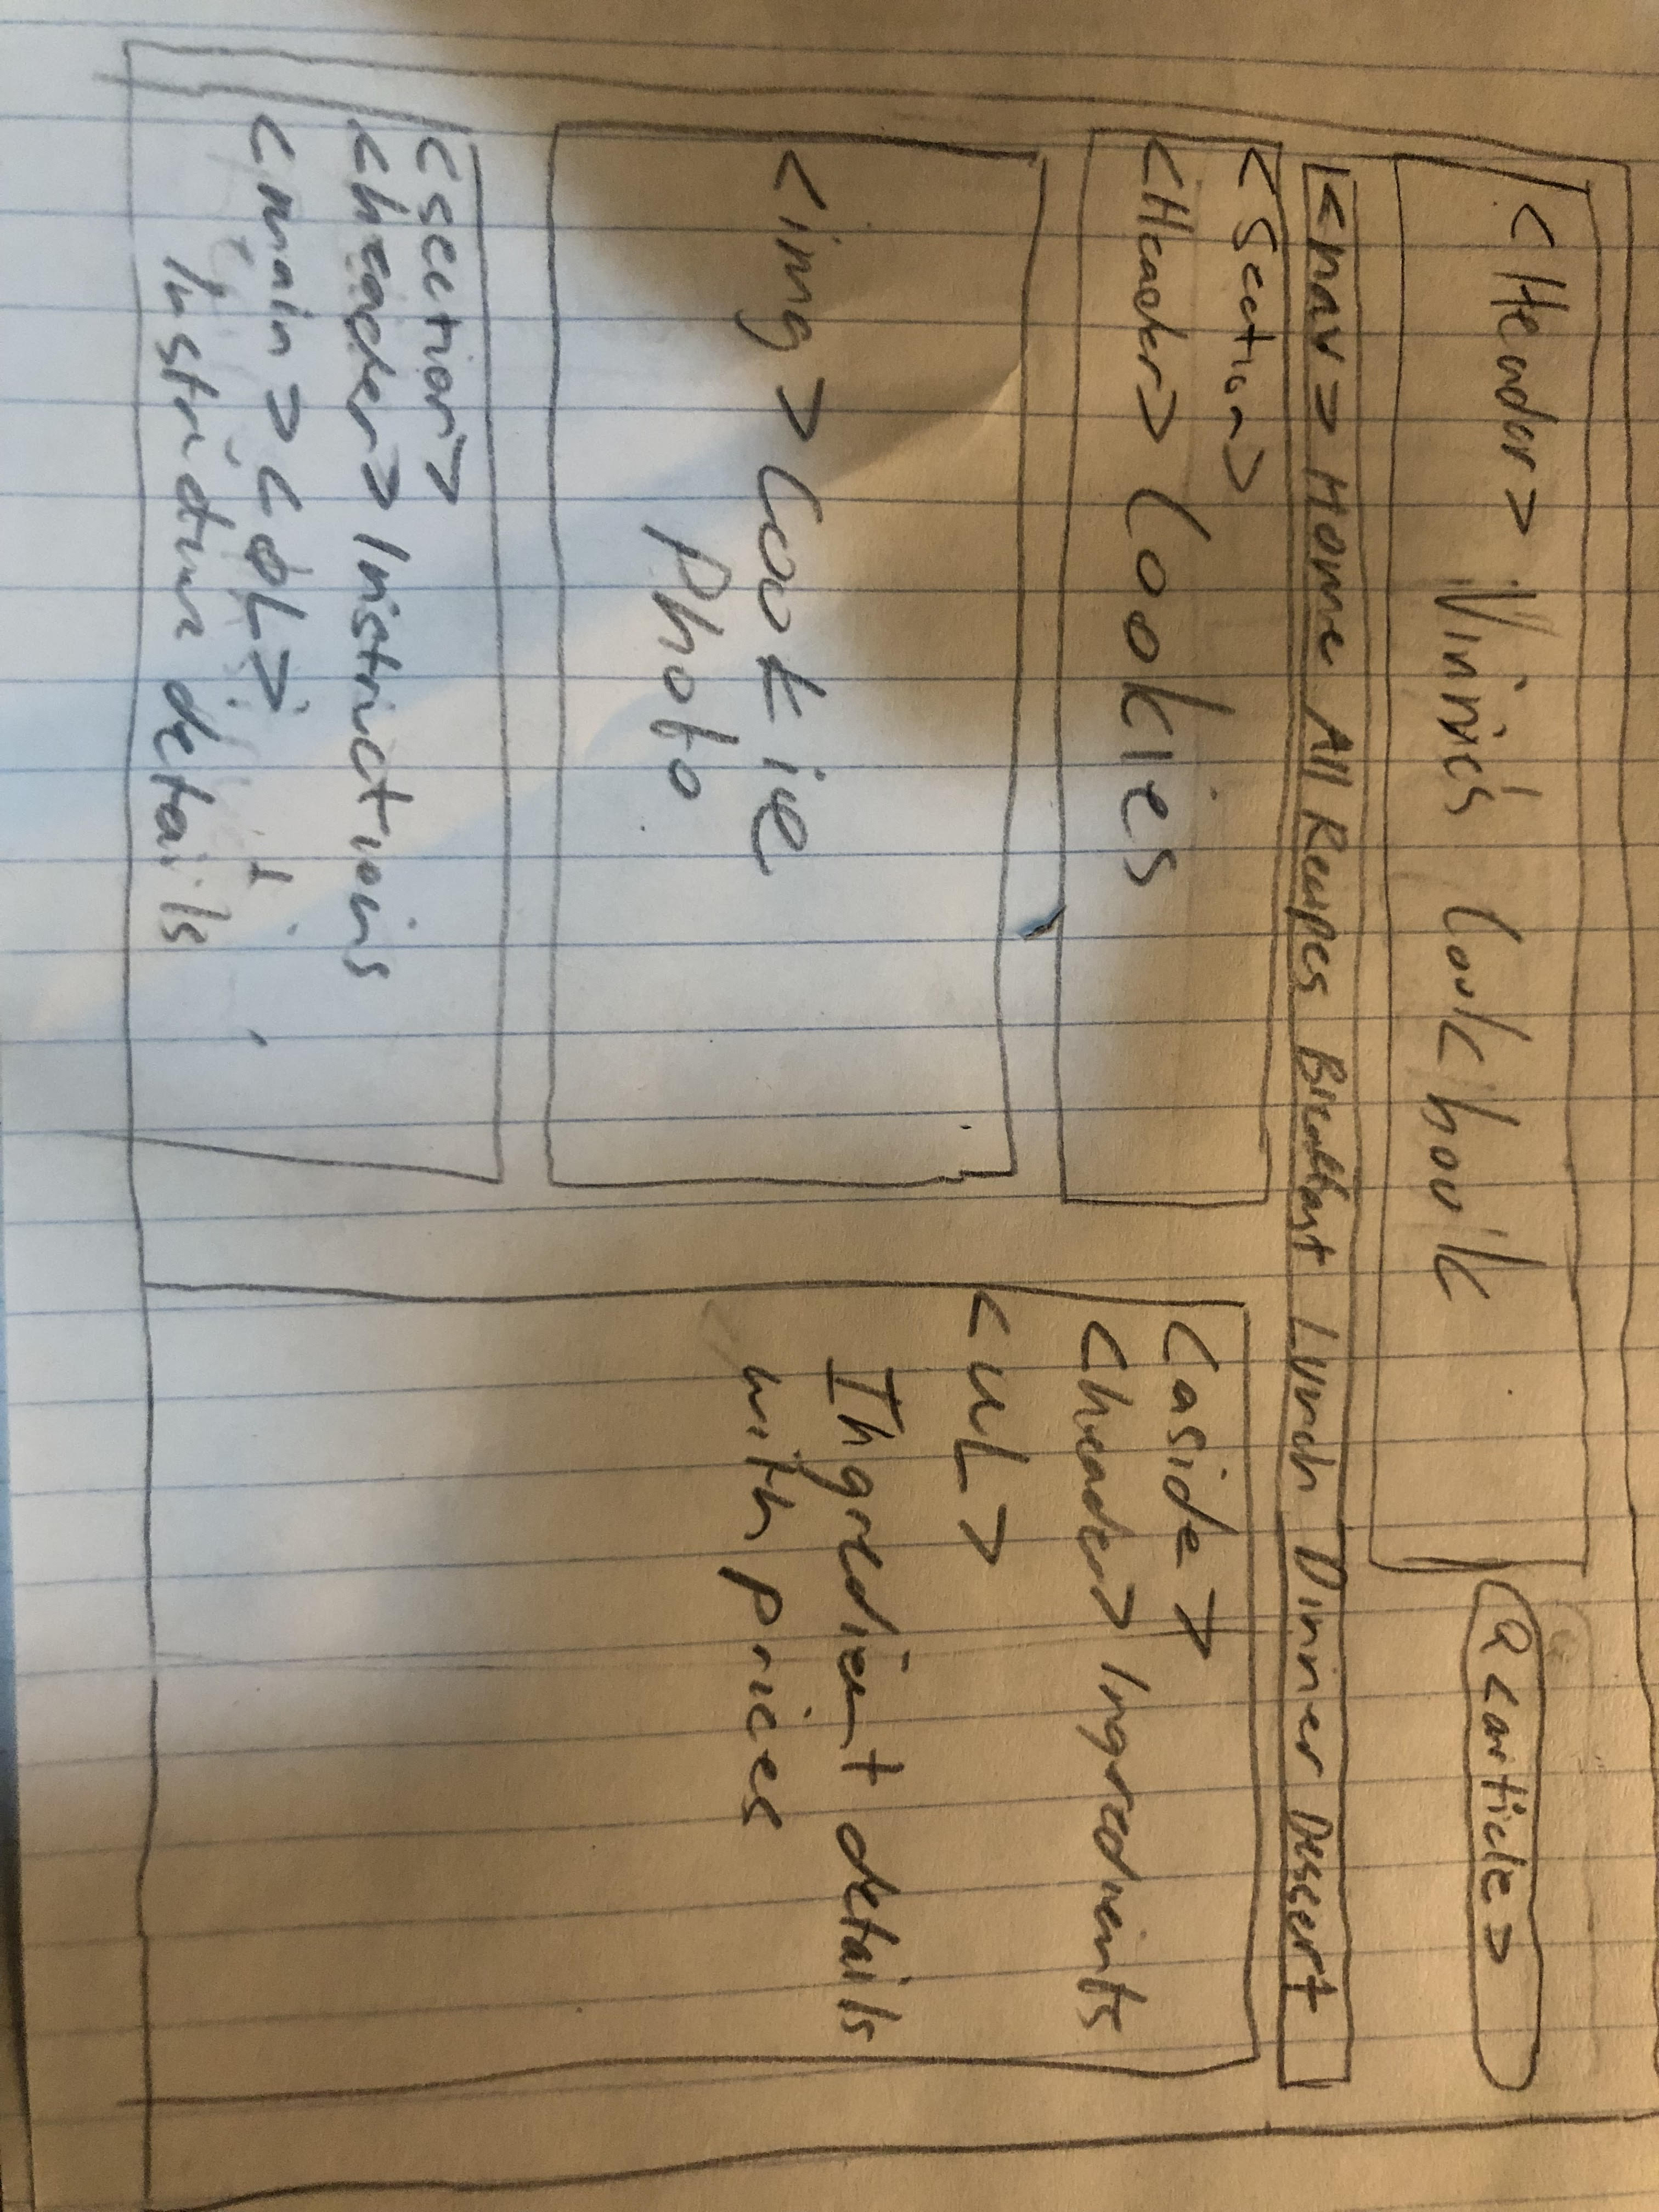 <Header> Vinnie's Cookbook
Q <article>
<nav> Home All Recipes Breakfast Lunch Dinner Dessert
<Section>
<Header> Cookies
<img> Cookie
Photo
<section>
<header> Instructions
<main> <OL>
Instruction details
<aside>
<header> Ingredients
<UL>
Ingredient details
with prices